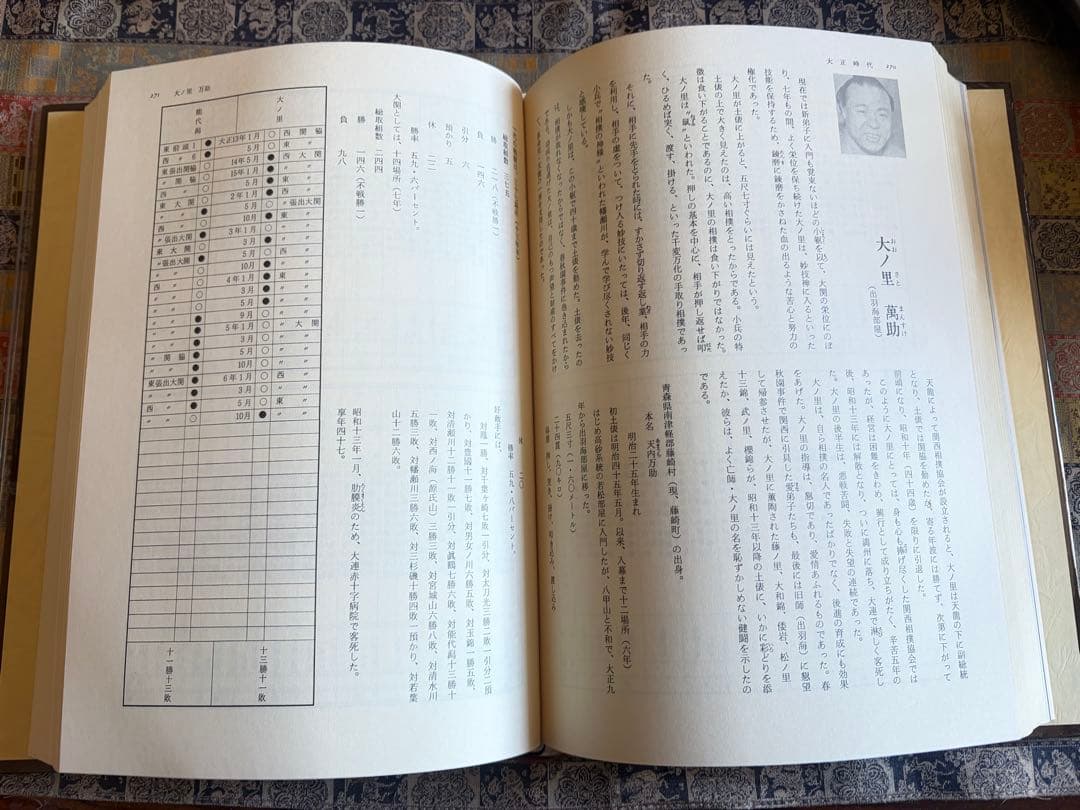 大正時代 270
大ノ里 萬助
おお さと まんすけ
（出羽海部屋）
現在では新弟子に入門も覚束ないほどの小躯を以て、大関の栄位にのぼ
り、七年もの間、よく栄位を保ち続けた大ノ里は、妙技神に入るといった
技能を保持するため、錬磨に錬磨をかさねた血の出るような苦心と努力の
権化であった。
大ノ里が土俵に上がると、五尺七寸ぐらいには見えたという。
土俵の上で大きく見えたのは、高い相撲をとったからである。小兵の特
徴は食い下がることであるのに、大ノ里の相撲は食い下がりではなかった。
大ノ里は、〝鼠〟といわれた。押しの基本を中心に、相手が押し返せば叩
く、ひるめば突く、渡す、掛ける、といった千変万化の手取り相撲であっ
た。
それに、相手に先手をとられた時には、すかさず切り返す返し業、相手の力
を利用し、相手の虚をついて、つけ入る妙技にいたっては、後年、同じく
小兵で〝相撲の神様〟といわれた幡瀬川が、学んで学び尽くされない妙技
と感嘆している。
しかも大ノ里は、この小躯で四十歳まで土俵を勤めた。土俵を去ったの
は、相撲が取れなくなったからではなく、春秋園事件に巻き込まれたから
天龍によって関西相撲協会が設立されると、大ノ里は天龍の下に副総統
となり、土俵では関脇を勤めたが、寄る年波には勝てず、次第に下がって
前頭になり、昭和十年（四十四歳）を限りに引退した。
このように大ノ里にとっては、身も心も捧げ尽くした関西相撲協会では
あったが、経営は困難をきわめ、興行として成り立ちがたく、辛苦五年の
後、昭和十三年には解散となり、ついに満州に落ち、大連で淋しく客死し
た。大ノ里の後半生は、悪戦苦闘、失敗と失望の連続であった。
大ノ里は、自ら相撲の名人であったばかりでなく、後進の育成にも効果
をあげた。大ノ里の指導は、懇切であり、愛情あふれるものであった。春
秋園事件で関西に引具した愛弟子たちも、最後には旧師（出羽海）に懇望
して帰参させたが、大ノ里に薫陶された藤ノ里、大和錦、倭岩、松ノ里
十三錦、武ノ里、櫻錦らが、昭和十三年以降の土俵に、いかに彩どりを添
えたか、彼らは、よく亡師・大ノ里の名を恥ずかしめない健闘を示したの
である。
青森県南津軽郡藤崎村（現、藤崎町）の出身。
本名 天内万助
明治二十五年生まれ
初土俵は明治四十五年五月。以来、入幕まで十二場所（六年）
はじめ高砂系統の若松部屋に入門したが、八甲山と不和で、大正九
年から出羽海部屋に移った。
五尺三寸（一・六〇メートル）
二十四貫（九〇キロ）
271 大ノ里 万助
総取組数 三七五
勝 二一八（不戦勝一）
負 一四六
引分 六
預かり 五
休 二二
勝率 五九・八パーセント。
大関としては、十四場所（七年）
総取組数 二四四
勝 一四六（不戦勝一）
負 九八
休 二〇
勝率 五九・八パーセント。
好敵手には、
対鳳一勝、対千葉ヶ崎七敗一引分、対太刀光三勝二敗一引分二預
かり、対豊國十一勝七敗、対男女ノ川六勝五敗、対玉錦一勝五敗、
対清瀬川十二勝十一敗一引分、対真鶴七勝六敗、対能代潟十三勝十
一敗、対西ノ海（源氏山）三勝三敗、対宮城山六勝八敗、対清水川
二勝五敗、対幡瀬川三勝六敗、対三杉磯十勝四敗一預かり、対若葉
山十二勝六敗。
昭和十三年一月、肋膜炎のため、大連赤十字病院で客死した。
享年四十七。
能代潟 大ノ里
東前頭1 ● 大正13年1月 ○ 西関脇
西〃6 ● 5月 ○ 東〃
東張出関脇 14年5月 西大関
〃関脇 15年1月
西〃 5月 東〃
東大関 2年1月 〃張出大関
〃 5月
〃 10月 東〃
西〃 3年1月
〃張出大関 3月 西〃
東大関 5月
〃張出大関 10月
西〃 4年1月 東〃
〃 3月
〃 5月
〃 9月
〃 5年1月 〃大関
〃 3月
〃関脇 5月
〃 10月
東張出大関 6年1月 西〃
〃 3月
西〃 5月 東〃
〃 10月
十一勝十三敗 十三勝十一敗